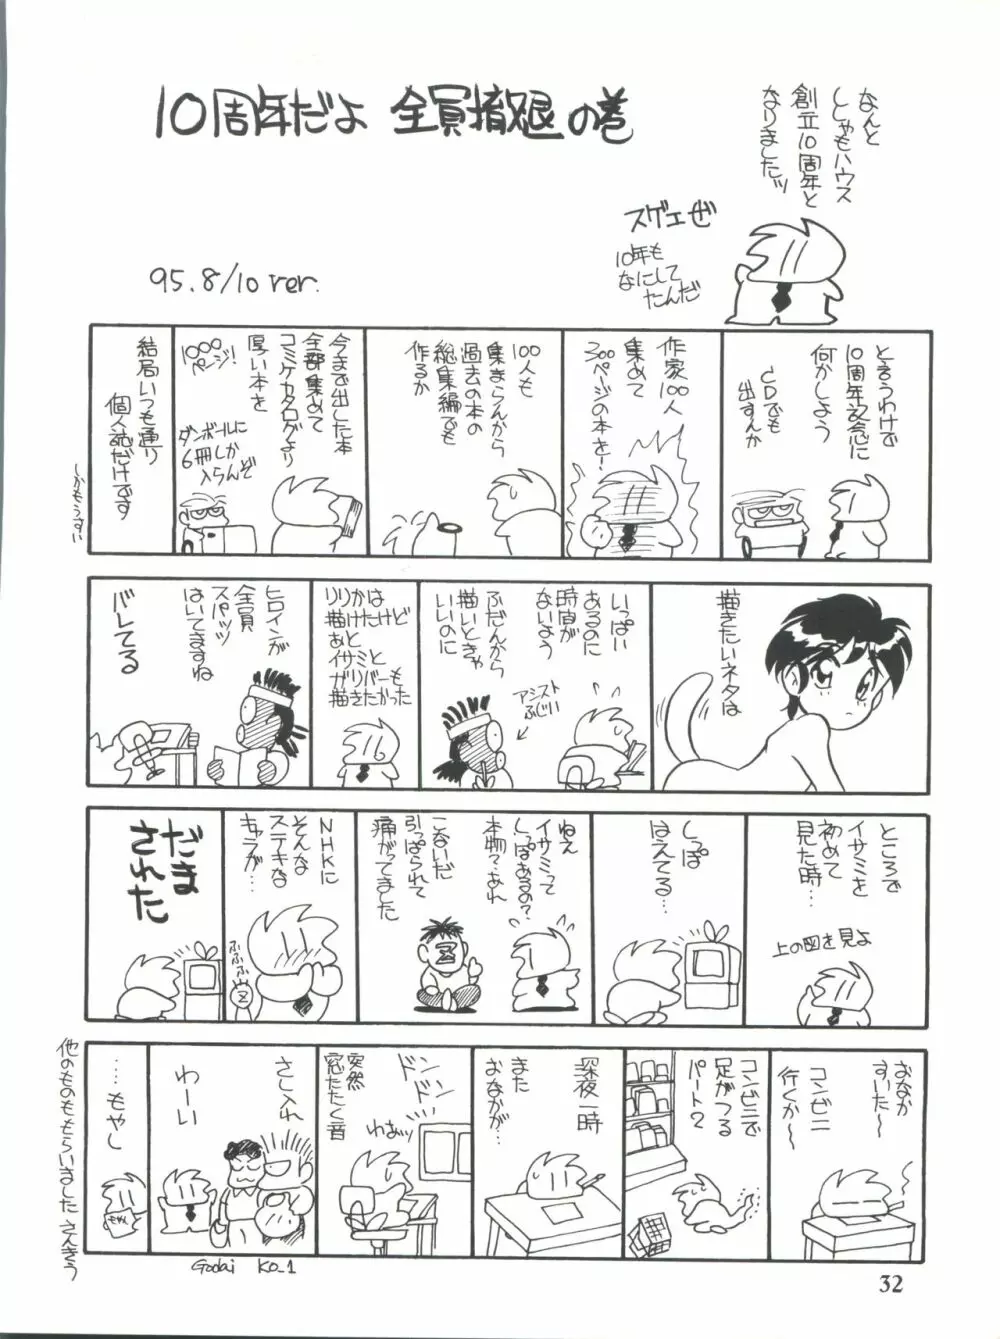 10周年だよ 全員撤退の巻
95.8/10 ver.
なんと
ししゃもハウス
創立10周年と
なりましたッ
スゲェぜ
10年も
なにして
たんだ
と言うわけで
10周年記念に
何かしよう
CDでも
出すんか
作家100人
集めて
300ページの本を!
100人も
集まらんから
過去の本の
総集編でも
作るか
今まで出した本
全部集めて
コミケカタログより
厚い本を
1000
ページ!
ダンボールに
6冊しか
入らんぞ
結局いつも通り
個人誌だけです
しかもうすい
描きたいネタは
いっぱい
あるのに
時間が
ないよう
ふだんから
描いときゃ
いいのに
アシスト
ふじい
はけど
かけた
りりかと
描けと
あとイサミと
ガリバーも
描きたかった
ヒロインが
全員
スパッツ
はいてますね
バレてる
ところで
イサミを
初めて
見た時…
上の図を見よ
しっぽ
はえてる…
ねえ
イサミって
しっぽあるの?
本物?あれ
こないだ
引っぱられて
痛がってました
NHKに
そんな
ステキな
キャラが…
ふふふ
だま
された
おなか
すいた〜
コンビニ
行くか〜
コンビニで
足がつる
パート2
深夜一時
また
おなかが…
ドン
ドン
ドン
突然
窓たたく音
わぁッ
さし入れ
わーい
……もやし
もやし
他のものももらいました さんきう
Godai KO_1
32